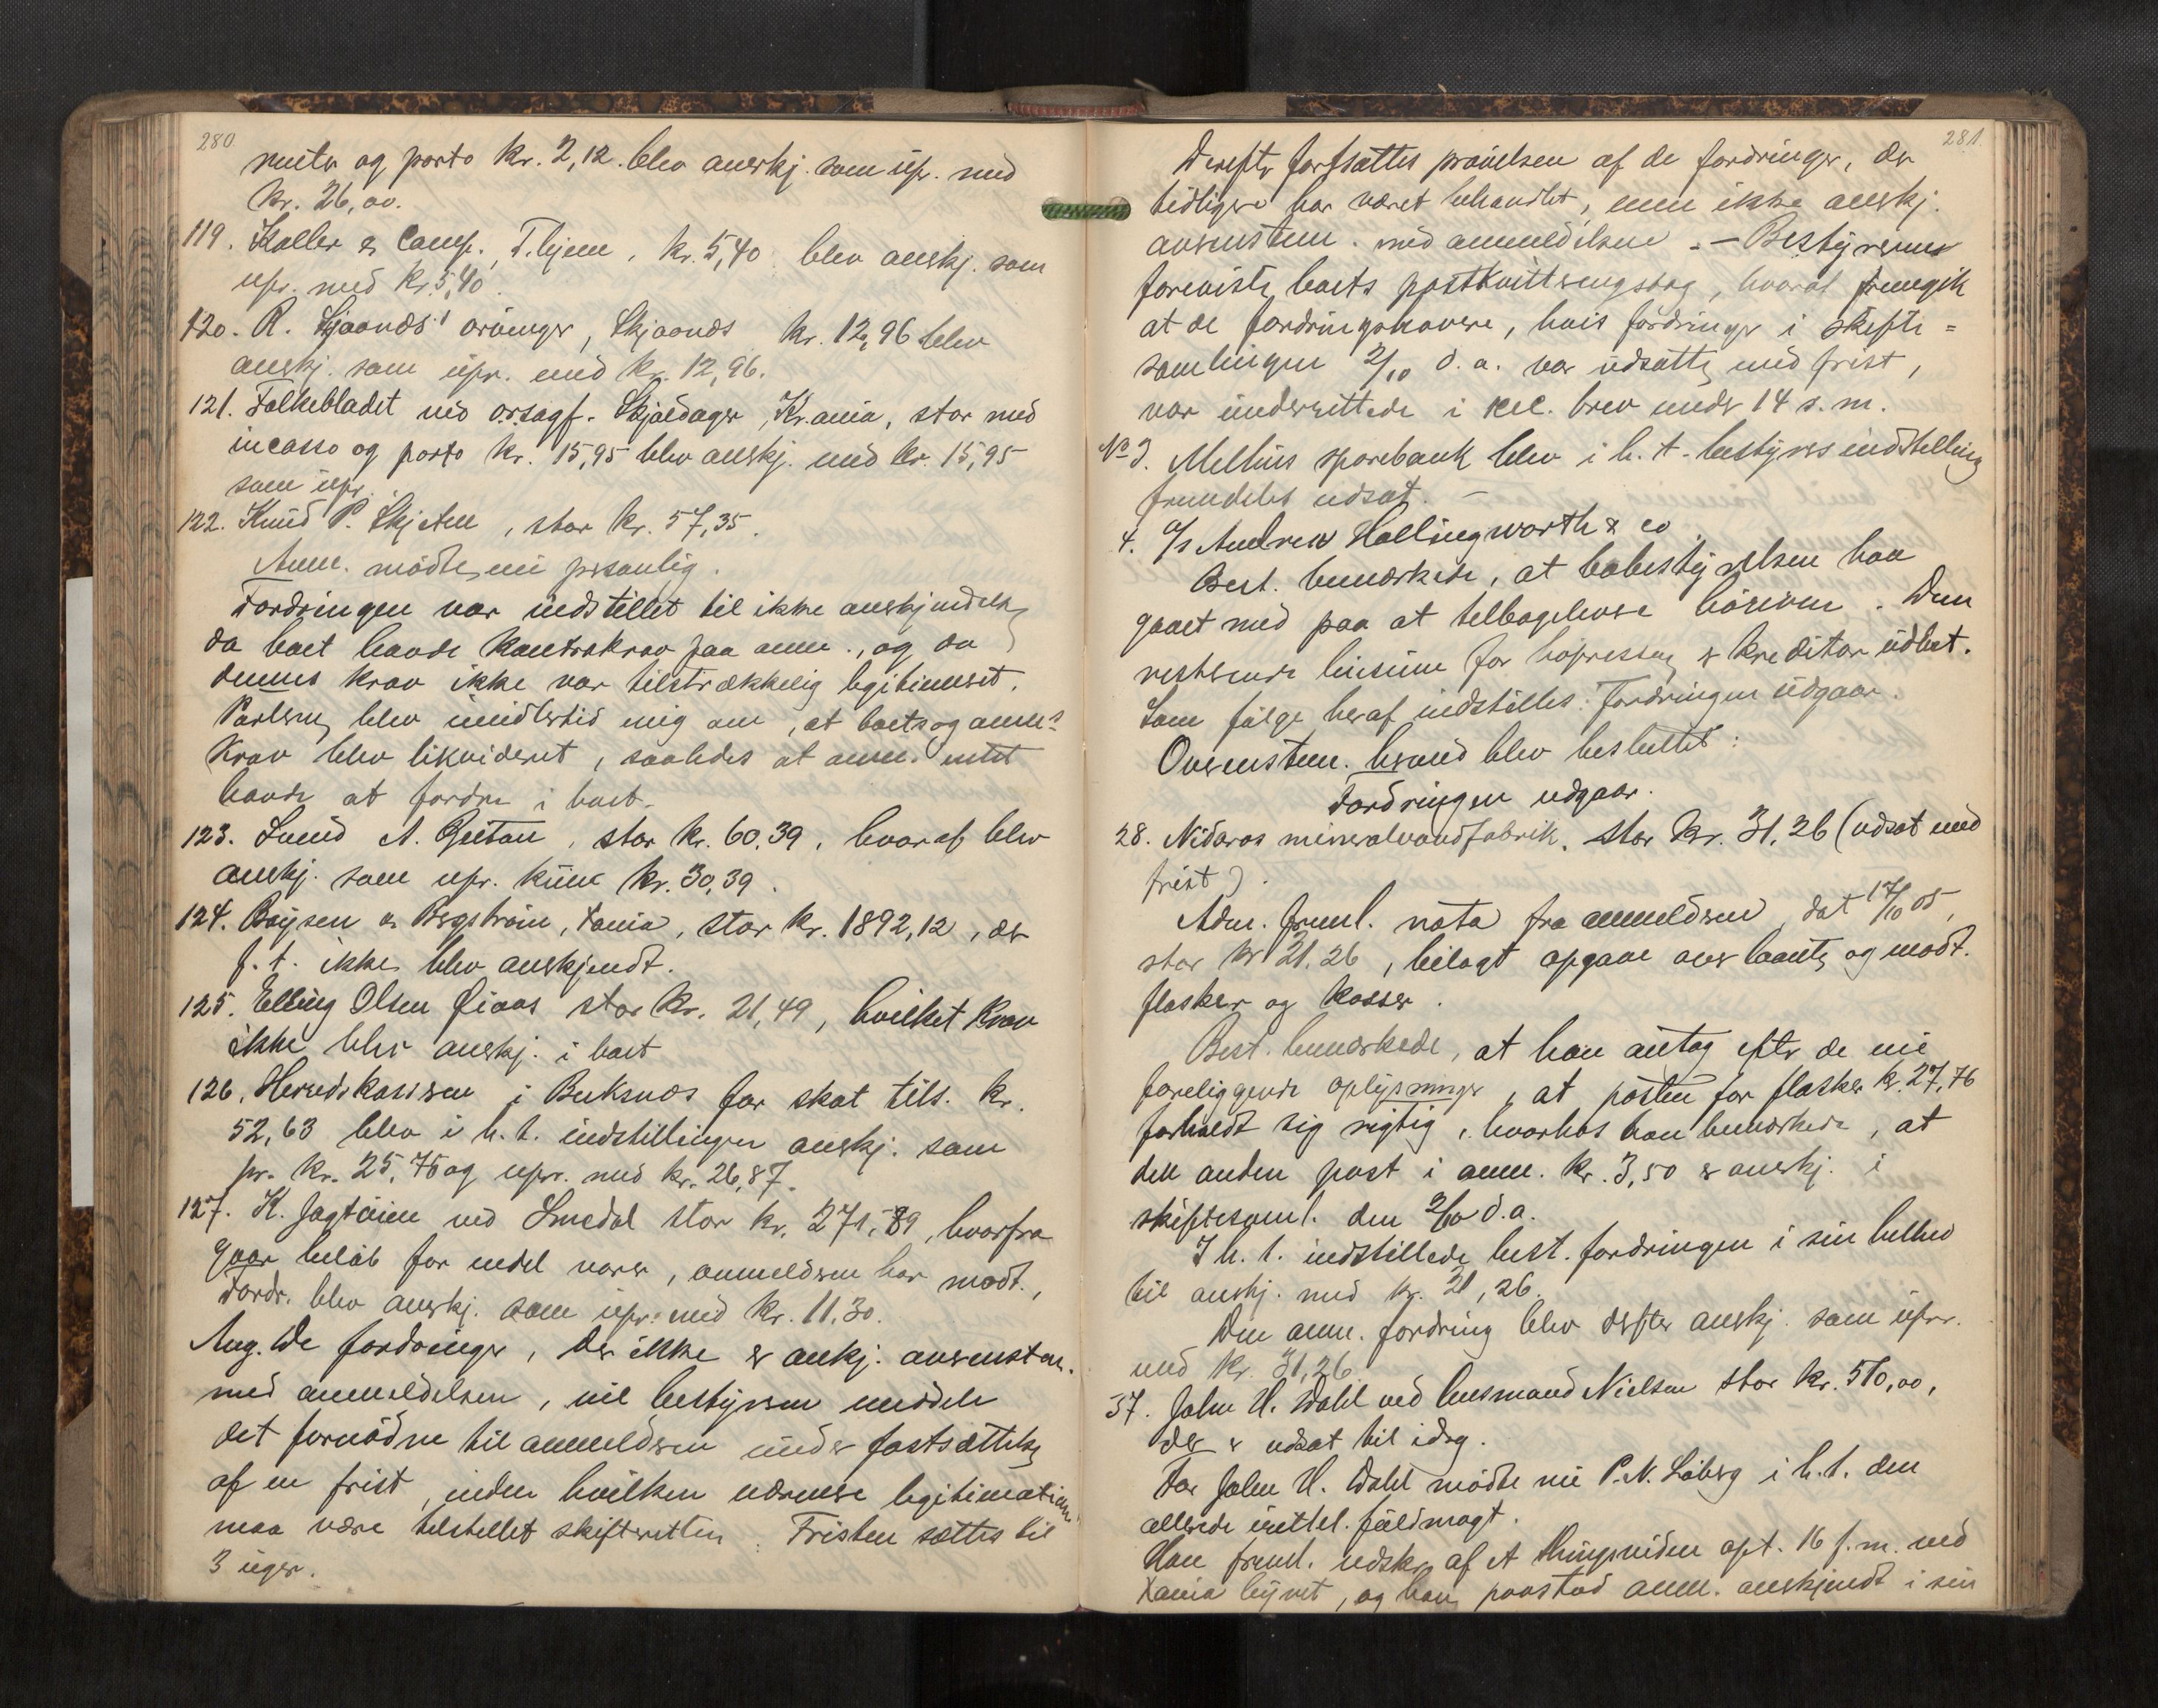 280.
renter og porto kr. 2,12. blev anerkj. som upr. med
kr. 26,00.
119. Koller & Comp., T.hjem, kr. 5,40 blev anerkj. som
upr. med kr. 5,40.
120. R. Skjaanæs' arvinger, Skjaanæs kr. 12,96 blev
anerkj. som upr. med kr. 12,96.
121. Folkebladet ved o.r.sagf. Skjøldager, Kr.ania, stor med
incasso og porto kr. 15,95 blev anerkj. med kr. 15,95
som upr.
122. Knud P. Skjeten, stor kr. 57,35.
Anm. mødte nu personlig.
Fordringen var indstillet til ikke anerkjendelse,
da boet havde kontrakrav paa anm., og da
dennes krav ikke var tilstrækkelig legitimeret.
Parterne blev imidlertid enig om, at boets og anm.s
krav blev likvideret, saaledes at anm. intet
havde at fordre i boet.
123. Lund A. Reitan, stor kr. 60,39, hvoraf blev
anerkj. som upr. kun kr. 30,39.
124. Boysen & Bergstrøm, Xania, stor kr. 1892,12, der
f. t. ikke blev anerkjendt.
125. Elling Olsen Øiaas stor kr. 21,49, hvilket krav
ikke blev anerkj. i boet
126. Herredskassen i Buksnæs for skat tils. kr.
52,63 blev i h. t. indstillingen anerkj. som
pr. kr. 25,76 og upr. med kr. 26,87.
127. K. Jagtøien ved Smedal stor kr. 271,89, hvorfra
gaar beløb for endel varer, anmelderen har modt.,
Fordr. blev anerkj. som upr. med kr. 11.30.
Ang. de fordringer, der ikke er ankj. overenstem.
med anmeldelsen, vil bestyreren meddele
det fornødne til anmelderen under fastsættelse
af en frist, inden hvilken nærmere legitimation
maa være tilstillet skifteretten. Fristen sættes til
3 uger.
281.
Derefter fortsattes prøvelsen af de fordringer, der
tidligere har været behandlet, men ikke anerkj.
overenstem. med anmeldelsen. – Bestyreren
foreviste boets postkvitteringsbog, hvoraf fremgik
at de fordringshavere, hvis fordringer i skifte=
samlingen 2/10 d. a. var udsatte med frist,
var underrettede i rec. brev under 14 s. m.
No 3. Melhus sparebank blev i h. t. bestyres indstilling
fremdeles udsat. –
4. A/S Andrew Hollingworth & co
Best. bemærkede, at bobestyrelsen har
gaaet med paa at tilbagelevere
resterende liesum for høpressen & kreditor udbet.
Som følge heraf indstilles: Fordringen udgaar.
Overenstem. hermed blev besluttet:
Fordringen udgaar.
28. Nidaros mineralvandfabrik, stor kr. 31,26 (udsat med
frist).
Adm. freml. nota fra anmelderen, dat 17/10 05,
stor kr 21.26, bilagt opgave over laante og modt.
flasker og kasser.
Best. bemærkede, at han antog efter de nu
foreliggende oplysninger, at posten for flasker kr. 27,76
forholdt sig rigtig, hvorhos han bemærkede, at
den anden post i anm. kr. 3,50 er anerkj. i
skiftesaml. den 2/10 d. a.
I h. t. indstillede best. fordringen i sin helhed
til anerkj. med kr. 31,26.
Den anm. fordring blev derefter anerkj. som upr.
med kr. 31,26.
37. John H. Dahl ved husmand Nielsen stor kr. 510,00,
der er udsat til idag.
For John H. Dahl mødte nu P. N. Løberg i h. t. den
allerede irettel. fuldmagt.
Han freml. udskr. af A Aungsviden opt. 16 f. m. ved
Xania byret, og han paastod anm. anerkjendt i sin